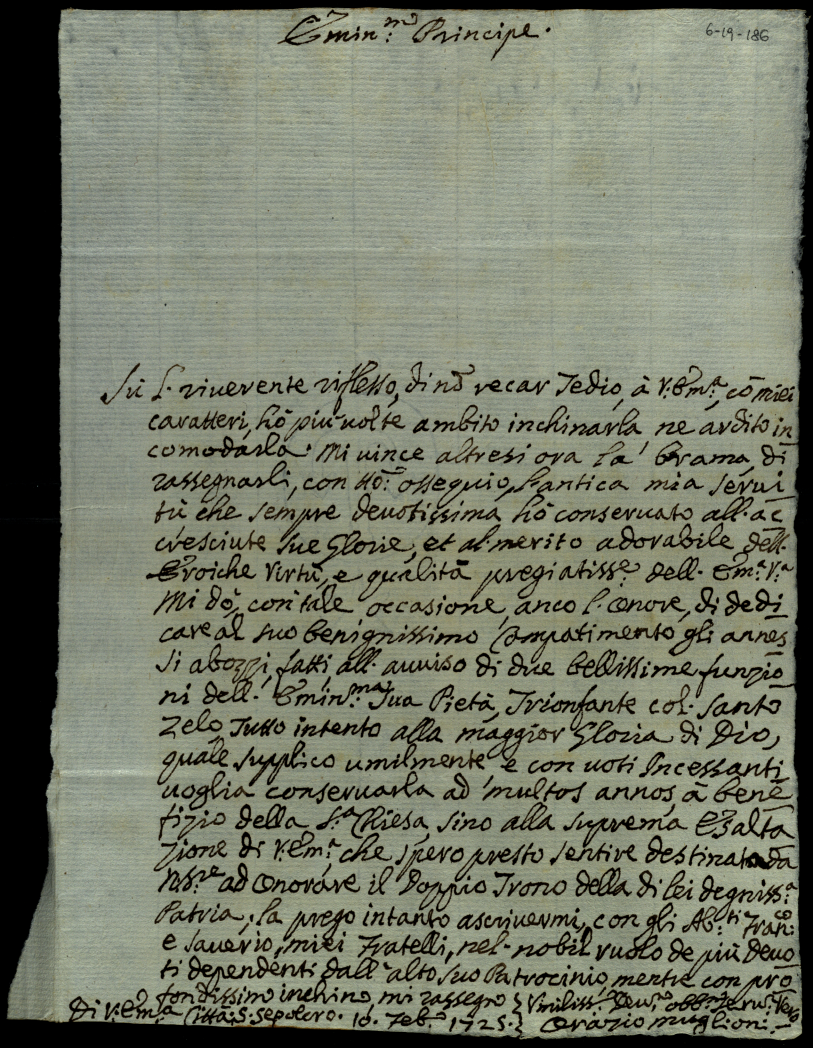 Emin.mo Principe.
6-19-186
Sù l. riuerente riflesso, di nõ recar Tedio, à V. Em.a, cõ miei
caratteri, hò più uolte ambito inchinarla ne ardito in
comodarla. Mi uince altresi ora la brama, di
rassegnarli, con ttõ: ossequio, l'antica mia serui
tù che sempre deuotissima hò conseruato all. ac
cresciute sue Glorie, et al merito adorabile dell.
Eroiche Virtù, e qualità pregiatiss.e dell. Em.a V.a
Mi dò, con tale occasione, anco l. onore, di dedi
care al suo benignissimo Compatimento gli annes
si abozzi, fatti, all. auuiso di due bellissime funzio
ni dell. Emin.ma Sua Pietà, Trionfante col. Santo
Zelo Tutto intento alla maggior Gloria di Dio,
quale supplico umilmente e con uoti Incessanti
uoglia conseruarla ad multos annos, à bene
fizio della S.a Chiesa, sino alla suprema Esalta
zione di V. Em.a che spero presto sentire destinata da
N. S.re ad Onorare il Doppio Trono della di lei degniss.a
Patria; la prego intanto ascriuermi, con gli Ab.ti Fran.co
e Sauerio, miei Fratelli, nel. nobil ruolo de più deuo
ti dependenti dall'alto suo Patrocinio, mentre con pro
fondissimo inchino, mi rassegno
Di V. Em.a Città: S. Sepolcro. 10. Feb.o 1725.
Vmiliss.o Deu.o obb.mo seru.
Orazio